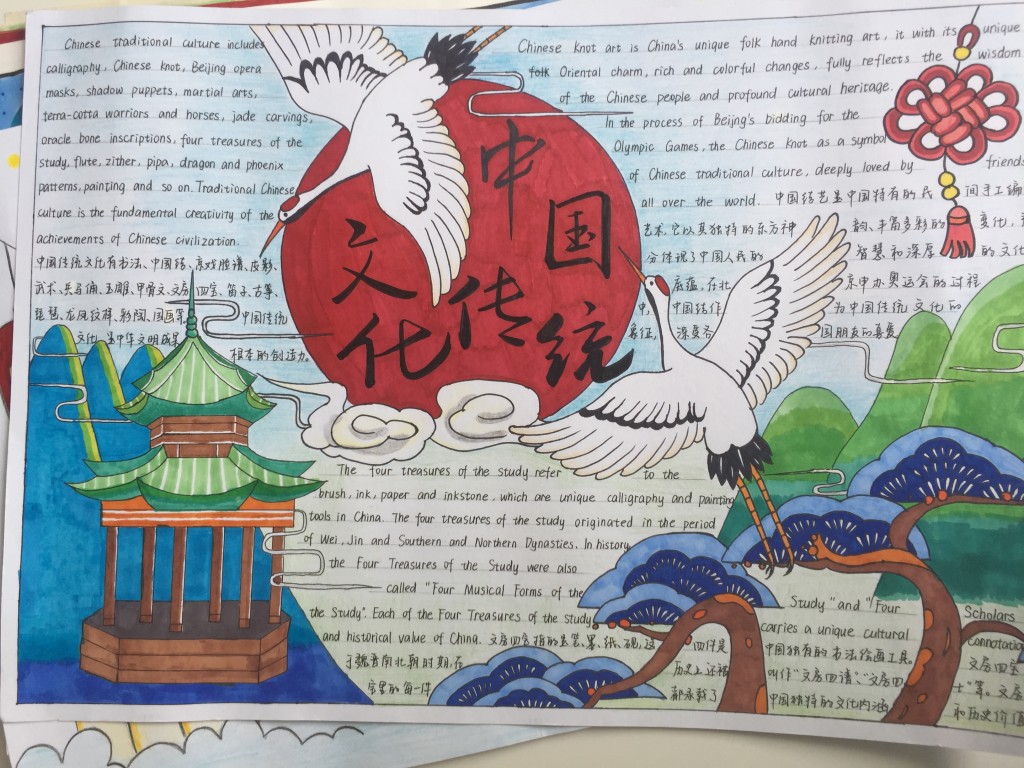 Chinese traditional culture includes
calligraphy, Chinese knot, Beijing opera
masks, shadow puppets, martial arts,
terra-cotta warriors and horses, jade carvings,
oracle bone inscriptions, four treasures of the
study, flute, zither, pipa, dragon and phoenix
patterns, painting and so on. Traditional Chinese
culture is the fundamental creativity of the
achievements of Chinese civilization.
中国传统文化有书法、中国结、京戏脸谱、皮影、
武术、兵马俑、玉雕、甲骨文、文房四宝、笛子、古筝、
琵琶、龙凤纹样、 国画等 中国传统
文化 是中华文明成果
根本的创造力。
中国
传统
文化
Chinese knot art is China's unique folk hand knitting art, it with its unique
folk Oriental charm, rich and colorful changes, fully reflects the wisdom
of the Chinese people and profound cultural heritage.
In the process of Beijng's bidding for the
Olympic Games, the Chinese knot as a symbol
of Chinese traditional culture, deeply loved by friends
all over the world. 中国结艺是中国特有的民 间手工编
艺术,它以其独特的东方神 韵、丰富多彩的 变化,
分体现了中国人民的 智慧和深厚 的文化
底蕴。在北 京申办奥运会的过程
中,中国结作 为中国传统文化的
象征, 深受各 国朋友的喜爱
The four treasures of the study refer to the
brush, ink, paper and inkstone, which are unique calligraphy and painting
tools in China. The four treasures of the study originated in the period
of Wei, Jin and Southern and Northern Dynasties. In history,
the Four Treasures of the Study were also
called "Four Musical Forms of the Study" and "Four Scholars
the Study". Each of the Four Treasures of the Study carries a unique cultural connotation
and historical value of China. 文房四宝指的是笔、墨、纸、砚,这 四件是 中国独有的书法绘画工具。 文房四宝
于魏晋南北朝时期,在 历史上还被 叫作"文房四谱"、"文房四 士"等。文房
宝里的每一件 都承载了 中国独特的文化内涵 和历史价值